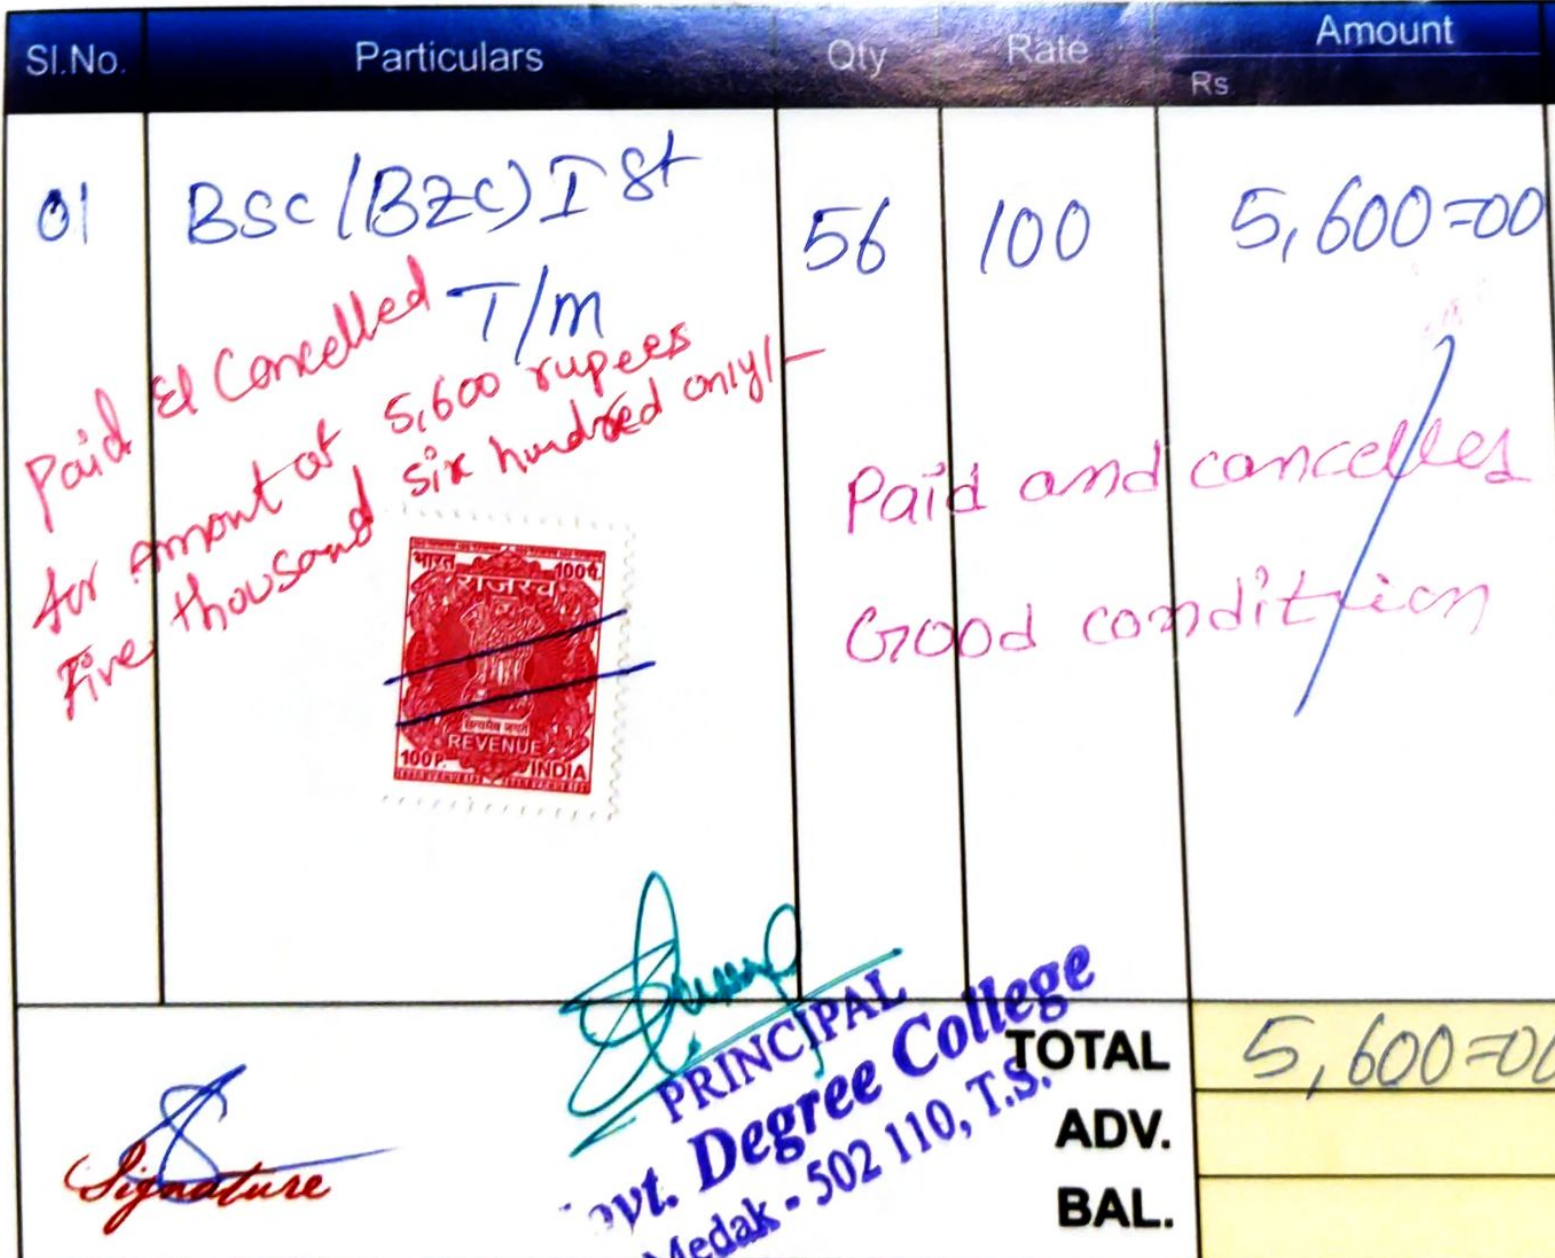 Sl.No. Particulars Qty Rate Amount
Rs.
01 BSC (BZC) I St 56 100 5,600=00
T/m
Paid & Cancelled
for Amount of 5,600 rupees
Five thousand six hundred only/-
Paid and cancelles
Good condition
भारत 100प.
राजस्व
सत्यमेव जयते
REVENUE
100P. INDIA
PRINCIPAL
ovt. Degree College
Medak - 502 110, T.S.
TOTAL 5,600=00
ADV.
BAL.
Signature